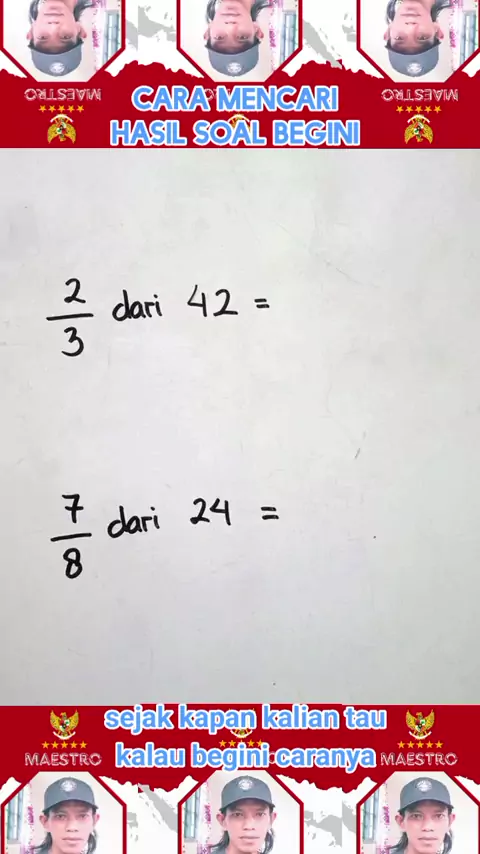 MAESTRO
MAESTRO
CARA MENCARI
HASIL SOAL BEGINI
2/3 dari 42 =
7/8 dari 24 =
sejak kapan kalian tau
kalau begini caranya
MAESTRO
MAESTRO